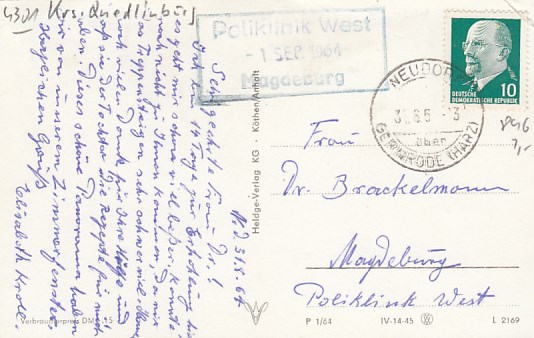 4301 Krs. Quedlinburg
Poliklinik West
- 1 SEP. 1964
Magdeburg
10
DEUTSCHE
DEMOKRATISCHE REPUBLIK
NEUDORF
über
GERNRODE (HARZ)
846
1,-
N. d. 31.8.64
Sehr geehrte Frau Dr.!
Bin 14 Tage zur Erholung hier
es geht mir schon viel besser. Konnte
noch nicht zu Ihnen kommen, da mir
das Treppensteigen sehr schwer fiel. Haben
noch vielen Dank für Ihre Hilfe und
daß sie der Tochter die Rezepte für mich
gaben. Dieses schöne Panorama haben
wir von unserem Zimmerfenster.
Herzlichen Gruß
Elisabeth Kroll.
Verbraucherpreis DM 0,15
Heldge-Verlag KG · Köthen/Anhalt
Frau
Dr. Brackelmann
Magdeburg
Poliklinik West
P 1/64
IV-14-45
L 2169